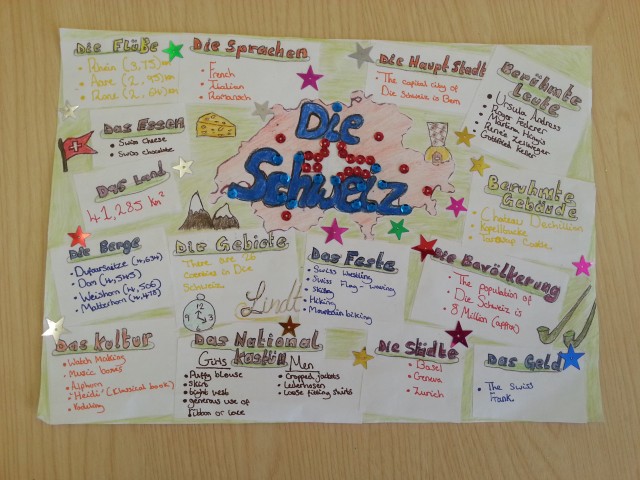 Die Flüße
• Rhein (3,75)km
• Aare (2,95)km
• Rone (2,64)km
Die Sprachen
• French
• Italian
• Romansch
Die Haupt Stadt
• The capital city of
Die Schweiz is Bern
Berühmte
Leute
• Ursula Andress
• Roger Federer
• Martina Hingis
• Reneé Zellweger
• Gottfried Keller
Das Essen
• Swiss cheese
• Swiss chocolate
Die
Schweiz
Das Land
41,285 km²
Beruhmte
Gebäude
• Chateau
• Kapellbrucke
• Castle
Die Berge
• Dufourspitze (4,634)
• Dom (4,545)
• Weishorn (4,506)
• Matterhorn (4,478)
Die Gebiete
There are 26
cantons in Die
Schweiz.
12
9
3
6
Lindt
Das Feste
• Swiss Wrestling
• Swiss Flag-waving
• Skiing
• Hiking
• Mountain biking
Die Bevölkerung
• The population of
Die Schweiz is
8 Million (approx)
Das Kultur
• Watch Making
• Music boxes
• Alphorn
• 'Heidi' (Classical book)
• Yodeling
Das National
Kostüm
Girls
• Puffy blouse
• skirt
• tight vest
• generous use of
ribbon or lace
Men
• Cropped jackets
• Lederhosen
• Loose fitting shirts
Die Städte
• Basel
• Geneva
• Zurich
Das Geld
• The Swiss
Frank.